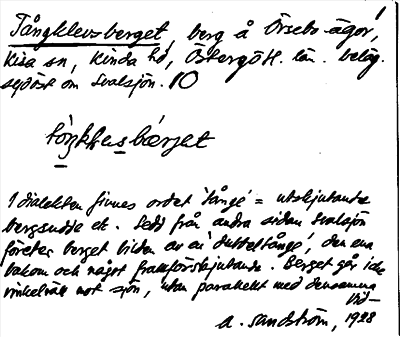 Tångklevsberget, berg å Örsebo ägor,
Kisa sn, Kinda hd, Östergötl. län. beläg.
sydöst om Svalsjön. 10
tóŋkḷevsbærget
I dialekten finnes ordet 'tånge' = utskjutande
bergsudde etc. Sedd från andra sidan Svalsjön
företer berget bilden av en 'dubbeltånge', den ena
bakom och något framförskjutande. Berget går icke
vinkelrätt mot sjön, utan parallellt med densamma
A. Sandström, 1928